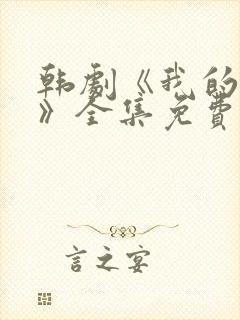 韩劇《我的
》全集免費
言之宴